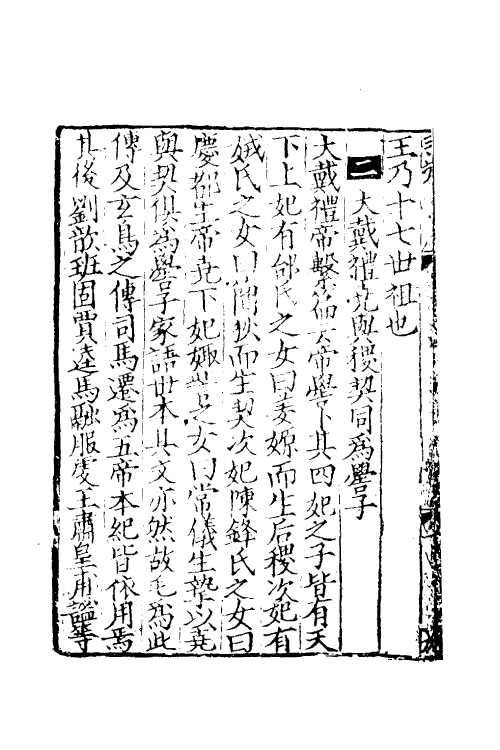 王乃十七世祖也
二　大戴禮堯與稷契同為嚳子
大戴禮帝繫篇云帝嚳卜其四妃之子皆有天
下上妃有邰氏之女曰姜嫄而生后稷次妃有
娀氏之女曰簡狄而生契次妃陳鋒氏之女曰
慶都生帝堯下妃娵訾氏之女曰常儀生摯以堯
與契俱為嚳子家語世本其文亦然故毛為此
傳及玄鳥之傳司馬遷為五帝本紀皆依用焉
其後劉歆班固賈逵馬融服虔王肅皇甫謐等